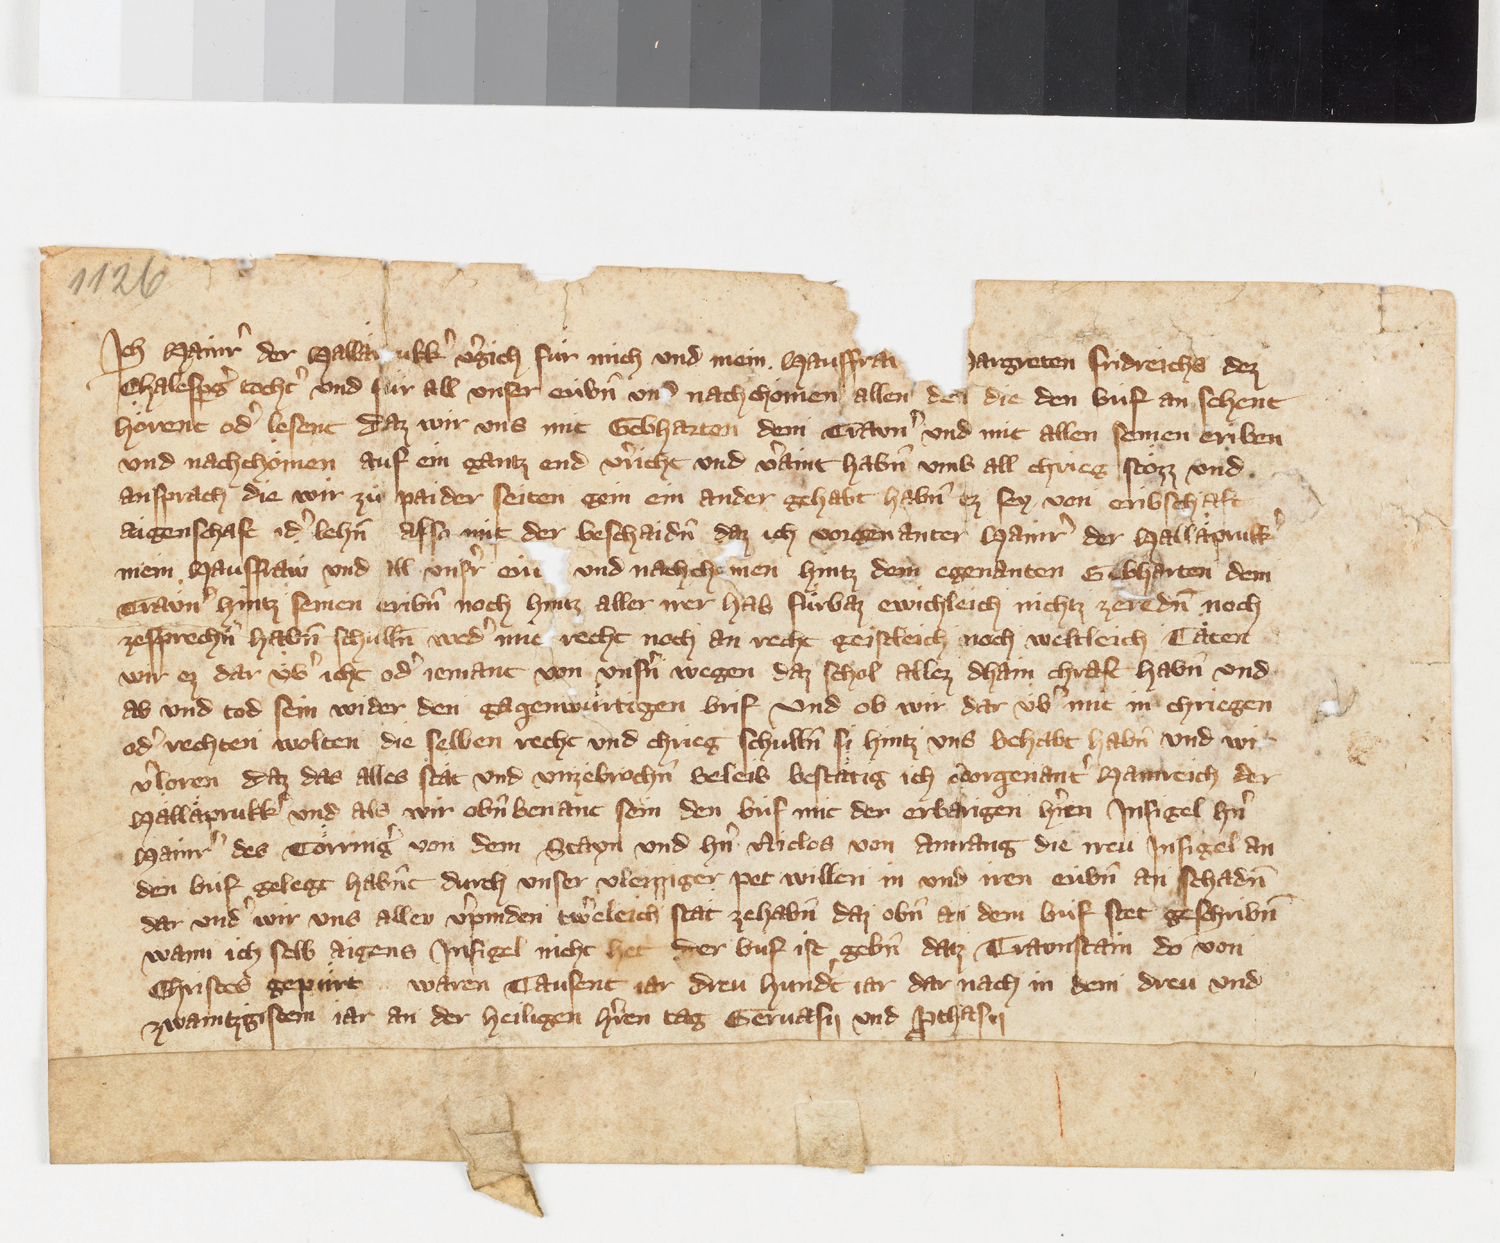 1126
Ich Hainr̾ der Hallä ukk̾ v̾gich für mich und mein Hausfra argreten Fridreichs dez
Chalsspg̾ tocht̾ vnd für all vnser erıbn̄ vn̄ nachchömen allen den die den brif an sehent
hörent od̾ lesent Daz wir vns mit Gebharten dem Travn̾ vnd mit allen seinen eriben
vnd nachchömen auf ein gantz end v̾richt vnd v̾aint habn̄ vmb all chrieg stözz vnd
ansprach die wir zü paider seiten gein ein ander gehabt habn̄ ez sey von eribschaft
aigenschaft od̾ lehn̄ also mit der beschaidn̄ daz ich vorgenanter Hainr̾ der Halläprukk̾
mein Hausfraw vnd all vns̾r eri vnd nachchomen hintz dem egenanten Gebharten dem
Travn̾ hintz seinen eribn̄ noch hintz aller irer hab fürbaz ewichleich nichtz zeredn̄ noch
zesprechn̄ habn̄ schulln̄ wed̾ mit recht noch an recht geistleich noch weltleich Täten
wir ez dar vb̾ icht od̾ iemant von vns̾n wegen daz schol allez dhain chraft habn̄ vnd
ab vnd tod sein wider den gagenwürtigen brif Vnd ob wir dar vb̾ mit in chriegen
od̾ rechten wolten die selben recht vnd chrieg schulln̄ si hintz vns behabt habn̄ vnd wi
v̾loren Daz das alles stät vnd vnzebrochn̄ beleib bestätig ich vorgenant̾ Hainreich der
Halläprukk̾ vnd als wir obn̄ benant sein den brif mit der erbärigen h̾ren Insigel hn̾
Hainr̾ des Törring̾ von dem Stayn vnd hn̾ Niclos von Amrang die ireu Insigel an
den brif gelegt habn̄t durch vnser vleizziger pet willen in vnd iren eribn̄ an schadn̄
dar vnd̾ wir vns aller v̾pinden tr̾weleich stät zehabn̄ daz obn̄ an dem brif stet geschribn̄
wann ich selb aigens Insigel nicht het Der brif ist gebn̄ datz Travnstain do von
Christes gepürt waren Tausent iar dreu hund̾t iar dar nach in dem dreu vnd
zwaintzgistem iar an der heiligen h̾ren tag Geruasii vnd P̱thasii